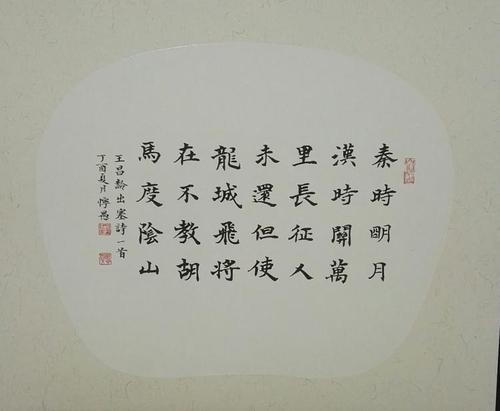 秦時明月
漢時關萬
里長征人
未還但使
龍城飛將
在不教胡
馬度陰山
王昌齡出塞詩一首
丁酉夏月